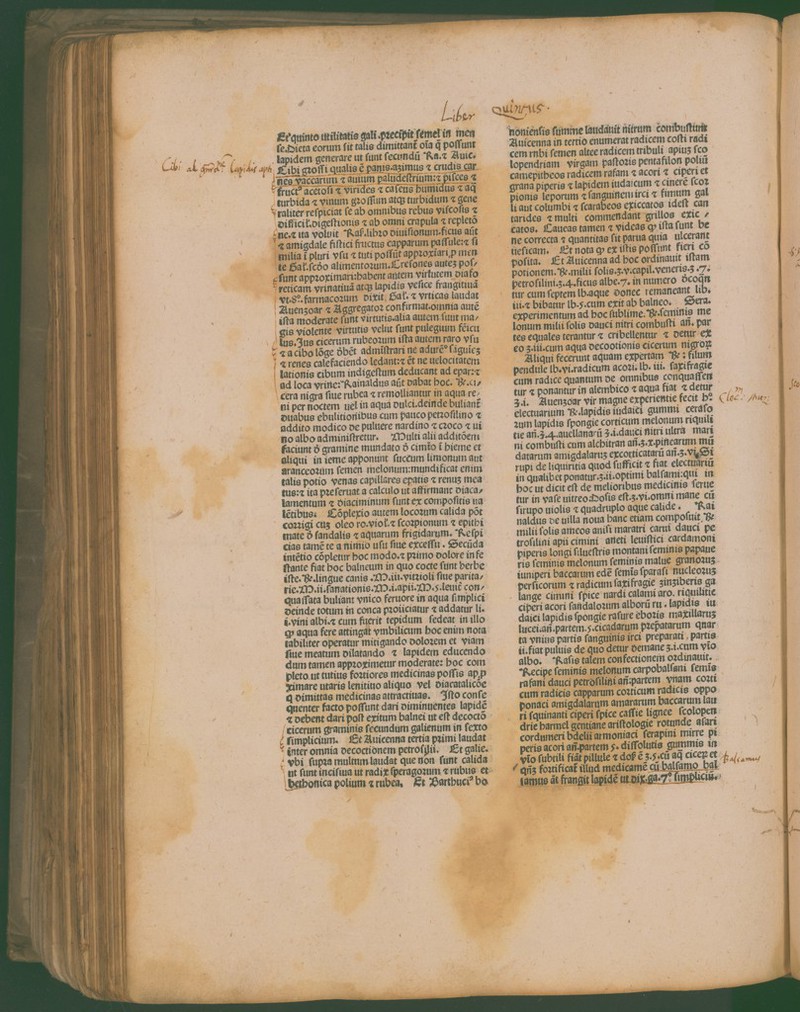 Liber Quintus.
Et quinto utilitatis gali .precipit semel in men
se. Dieta eorum sit talis dimittant oīa q̄ possunt
lapidem generare ut sunt secundū Ra. ⁊ Auic.
Cibi grossi qualis ē panis azimus ⁊ crudis car
nes vaccarum ⁊ auium paludestrium: ⁊ pisces ⁊
fruct⁹ acetosi ⁊ virides ⁊ caseus humidus ⁊ aq̄
turbida ⁊ vinum grossum atqꝫ turbidum ⁊ gene
raliter respiciat se ab omnibus rebus viscosis ⁊
difficil. digestionis ⁊ ab omni crapula ⁊ repletō
ne. ⁊ ita voluit Ras̄. libro diuisionum. ficus aūt
⁊ amigdale fistici fructus capparum passule: ⁊ si
milia ī pluri vsu ⁊ tuti possūt approxīari, p men
te Gal. scďo alimentorum. Cresones autez pos-
sunt approximari: habent autem virtutem diafo
reticam vrinatiuā atqꝫ lapidis vesice frangitiuā
vt. 8°. farmacorum dixit Gal. ⁊ vrticas laudat
Auenzoar ⁊ Aggregator confirmat. omnia autē
ista moderate sunt virtutis. alia autem sunt ma-
gis violente virtutis velut sunt pulegium fēicu
lus. Jus cicerum rubeorum ista autem raro vsu
⁊ a cibo lōge ōbēt admīstrari ne adurēt⁹ siguīez
⁊ renes calefaciendo ledant: ⁊ ēt ne uelocitatem
lationis cibum indigestum deducant ad epar: ⁊
ad loca vrine: Rainaldus aūt dabat hoc. ℞. ci-
cera nigra siue rubea ⁊ remolliantur in aqua re-
ni per noctem uel in aqua dulci. deinde buliant
duabus ebulitionibus cum pauco petrosilino ⁊
addito modico de puluere nardino ⁊ croco ⁊ ui
no albo administretur. Multi alii additōem
faciunt ō gramine mundato ō cimīo ī hieme et
aliqui in ieme apponunt succum limonum aut
aranceorum semen melonum: mundificat enim
talis potio venas capillares epatis ⁊ renuꝫ mea
tus: ⁊ ita preseruat a calculo ut affirmant diaca-
lamentum ⁊ diaciminum sunt ex compositis ua
lētibus. Cōplexio autem locorum calida pōt
corrigi cuꝫ oleo ro. viol. ⁊ scorpionum ⁊ epithi
mate ō sandalis ⁊ aquarum frigidarum. Respi
cias tamē te a nimio usu siue excessu. Secūda
intētio cōpletur hoc modo. ⁊ primo dolore infe
stante fiat hoc balneum in quo cocte sunt herbe
iste. ℞. lingue canis .M. iii. vitrioli siue parita-
rie .M. ii. sanationis .M. i. apii .M. s. leuiť con-
quassata buliant vnico feruore in aqua simplici
deinde totum in conca proiiciatur ⁊ addatur li.
i. vini albi. ⁊ cum fuerit tepidum sedeat in illo
ꝙ aqua fere attingat vmbilicum hoc enim nota
tabiliter operatur mitigando dolorem et viam
siue meatum dilatando ⁊ lapidem educendo
dum tamen approximetur moderate: hoc com
pleto ut tutius fortiores medicinas possis app̄
ximare utaris lenitiuo aliquo vel diacatalicōe
q̄ dimittas medicinas attractiuas. Isto conse
quenter facto possunt dari diminuentes lapidē
⁊ debent dari post exitum balnei ut est decoctō
cicerum graminis secundum galienum in sexto
simplicium. Et Auicenna tertia primi laudat
inter omnia decoctionem petrosilii. Et galie.
vbi supra multum laudat que non sunt calida
ut sunt incisiua ut radix speragorum ⁊ rubus et
bethonica polium ⁊ rubea. Et Barthuci⁹ bo
noniensis summe laudauit nitrum combustum
Auicenna in tertio enumerat radicem costi radi
cem rubi semen altee radicem tribuli apiuꝫ sco
lopendriam virgam pastoris pentafilon poliū
camepitheos radicem rafani ⁊ acori ⁊ ciperi et
grana piperis ⁊ lapidem iudaicum ⁊ cinerē scor
pionis leporum ⁊ sanguinem irci ⁊ fimum gal
li aut columbi ⁊ scarabeos exiccatos idest can
tarides ⁊ multi commendant grillos exic-
catos. Caueas tamen ⁊ videas ꝙ ista sunt be
ne correcta ⁊ quantitas sit parua quia ulcerant
uesicam. Et nota ꝙ ex istis possunt fieri cō
posita. Et Auicenna ad hoc ordinauit istam
potionem. ℞. milii solis .ʒ. v. capil. veneris .ʒ. 7.
petrosilini .ʒ. 4. ficus albe. 7. in numero ōcoqn̄
tur cum septem lb. aque donec remaneant lib.
iii. ⁊ bibatur lb. s. cum exit ab balneo. Sera.
experimentum ad hoc sublime. ℞. seminis me
lonum milii solis dauci nitri combusti an̄. par
tes equales terantur ⁊ cribellentur ⁊ detur ex
eo ʒ. iii. cum aqua decoctionis cicerum nigroꝝ
Aliqui fecerunt aquam expertam ℞: filum
pendule lb. vi. radicum acori: lb. iii. saxifragie
cum radice quantum de omnibus conquassen
tur ⁊ ponantur in alembico ⁊ aqua fiat ⁊ detur
ʒ. i. Auenzoar vir magne experientie fecit h°
electuarium ℞. lapidis iudaici gummi ceraso
rum lapidis spongie corticum melonum riquili
tie an̄. ʒ. 4. auellanarū ʒ. i. dauci nitri ultra mari
ni combusti cum alchitran an̄. ʒ. x. pinearum mū
datarum amigdalarum excorticatarū an̄. ʒ. vi. Si
rupi de liquiritia quod sufficit ⁊ fiat electuariū
in qualibet ponatur. ʒ. ii. optimi balsami: qui in
hoc ut dicit est de melioribus medicinis serue
tur in vase uitreo. Dosis est. ʒ. vi. omni mane cū
sirupo uiolis ⁊ quadruplo aque calide. Rai
naldus de uilla noua hanc etiam composuit. ℞.
milii solis ameos anisi maratri carui dauci pe
trosilini apii cimini aneti leuistici cardamoni
piperis longi siluestris montani seminis papaue
ris seminis melonum seminis malue granorum
iuniperi baccarum edē semīs sparasi nucleoruꝫ
persicorum ⁊ radicum saxifragie zinziberis ga
lange cimini spice nardi calami aro. riquilitie
ciperi acori sandalorum alborū ru. lapidis iu
daici lapidis spongie rasure eboris maxillaruꝫ
lucei. an̄. partem. s. cicadarum prepatarum quar
ta vnius partis sanguinis irci preparati. partis
ii. fiat puluis de quo detur demane ʒ. i. cum vīo
albo. Rasis talem confectionem ordinauit.
Recipe seminis melonum carpobalsami semīs
rafani dauci petrosilini an̄. partem vnam corti
cum radicis capparum corticum radicis oppo
ponaci amigdalarum amararum baccarum lau
ri squinanti ciperi spice cassie lignee scolopen
drie harmel gentiane aristologie rotunde asari
cordumeri bdelii armoniaci serapini mirre pi
peris acori an̄. partem s. dissolutis gummis in
vīo subtili fiāt pillule ⁊ dos̄ ē ʒ. s. cū aq̄ cicer̄ et
qn̄ꝫ fortificať illud medicamē cū balsamo bal
samus āt frangit lapidē ut dix. ga. 7° simpliciū.
balsamus